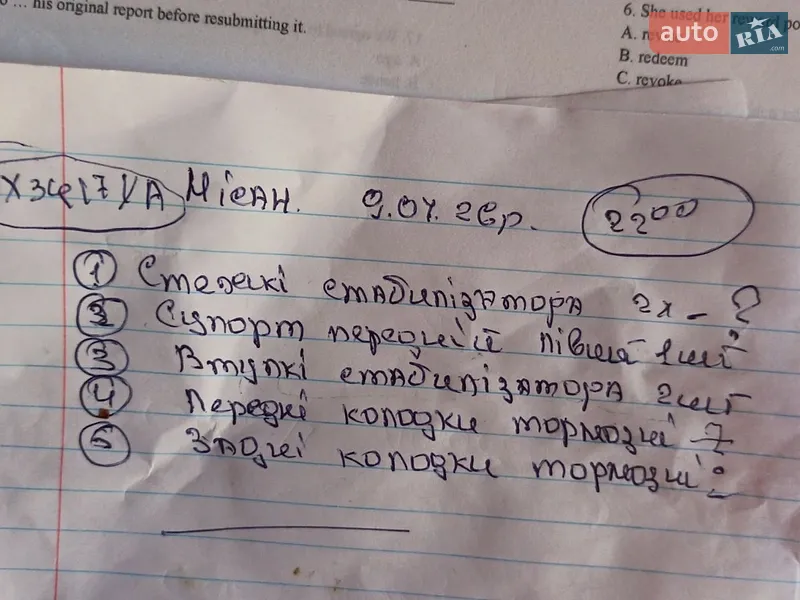 his original report before resubmitting it.
6. She used her
B. redeem
C. revoke
auto RIA .com
Нісан. 9.04.26р. 2200
1 Стезькі стабилізатора 2х - ?
2 Супорт передній лівий 1шт
3 Втулкі стабилізатора 2шт
4 передні колодки тормозні ?
5 Задні колодки тормозні ?